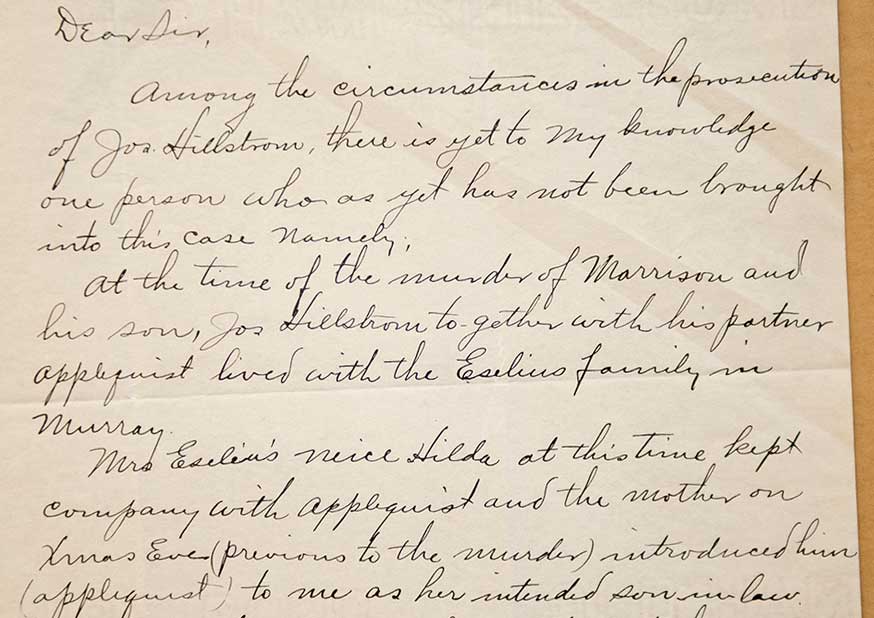 Dear Sir,
Among the circumstances in the prosecution
of Jos. Hillstrom, there is yet to my knowledge
one person who as yet has not been brought
into this case namely;
At the time of the murder of Morrison and
his son, Jos Hillstrom to-gether with his partner
applequist lived with the Eselius family in
Murray.
Mrs Eselius's neice Hilda at this time kept
company with applequist and the mother on
Xmas Eve (previous to the murder) introduced him
(applequist) to me as her intended son-in-law.